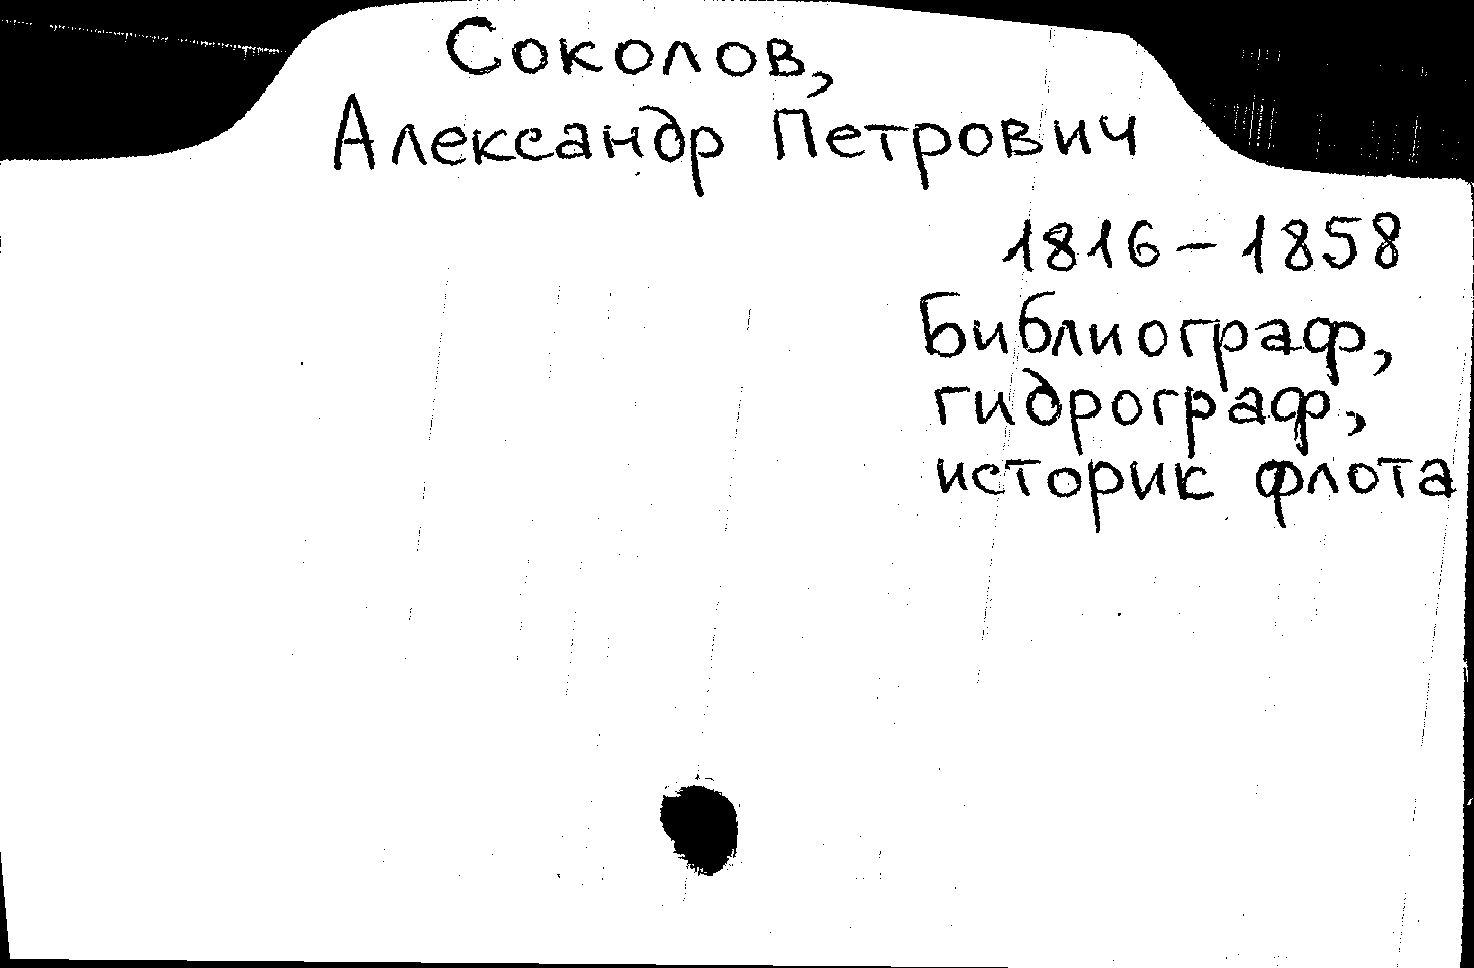 Соколов,
Александр Петрович
1816 – 1858
Библиограф,
гидрограф,
историк флота